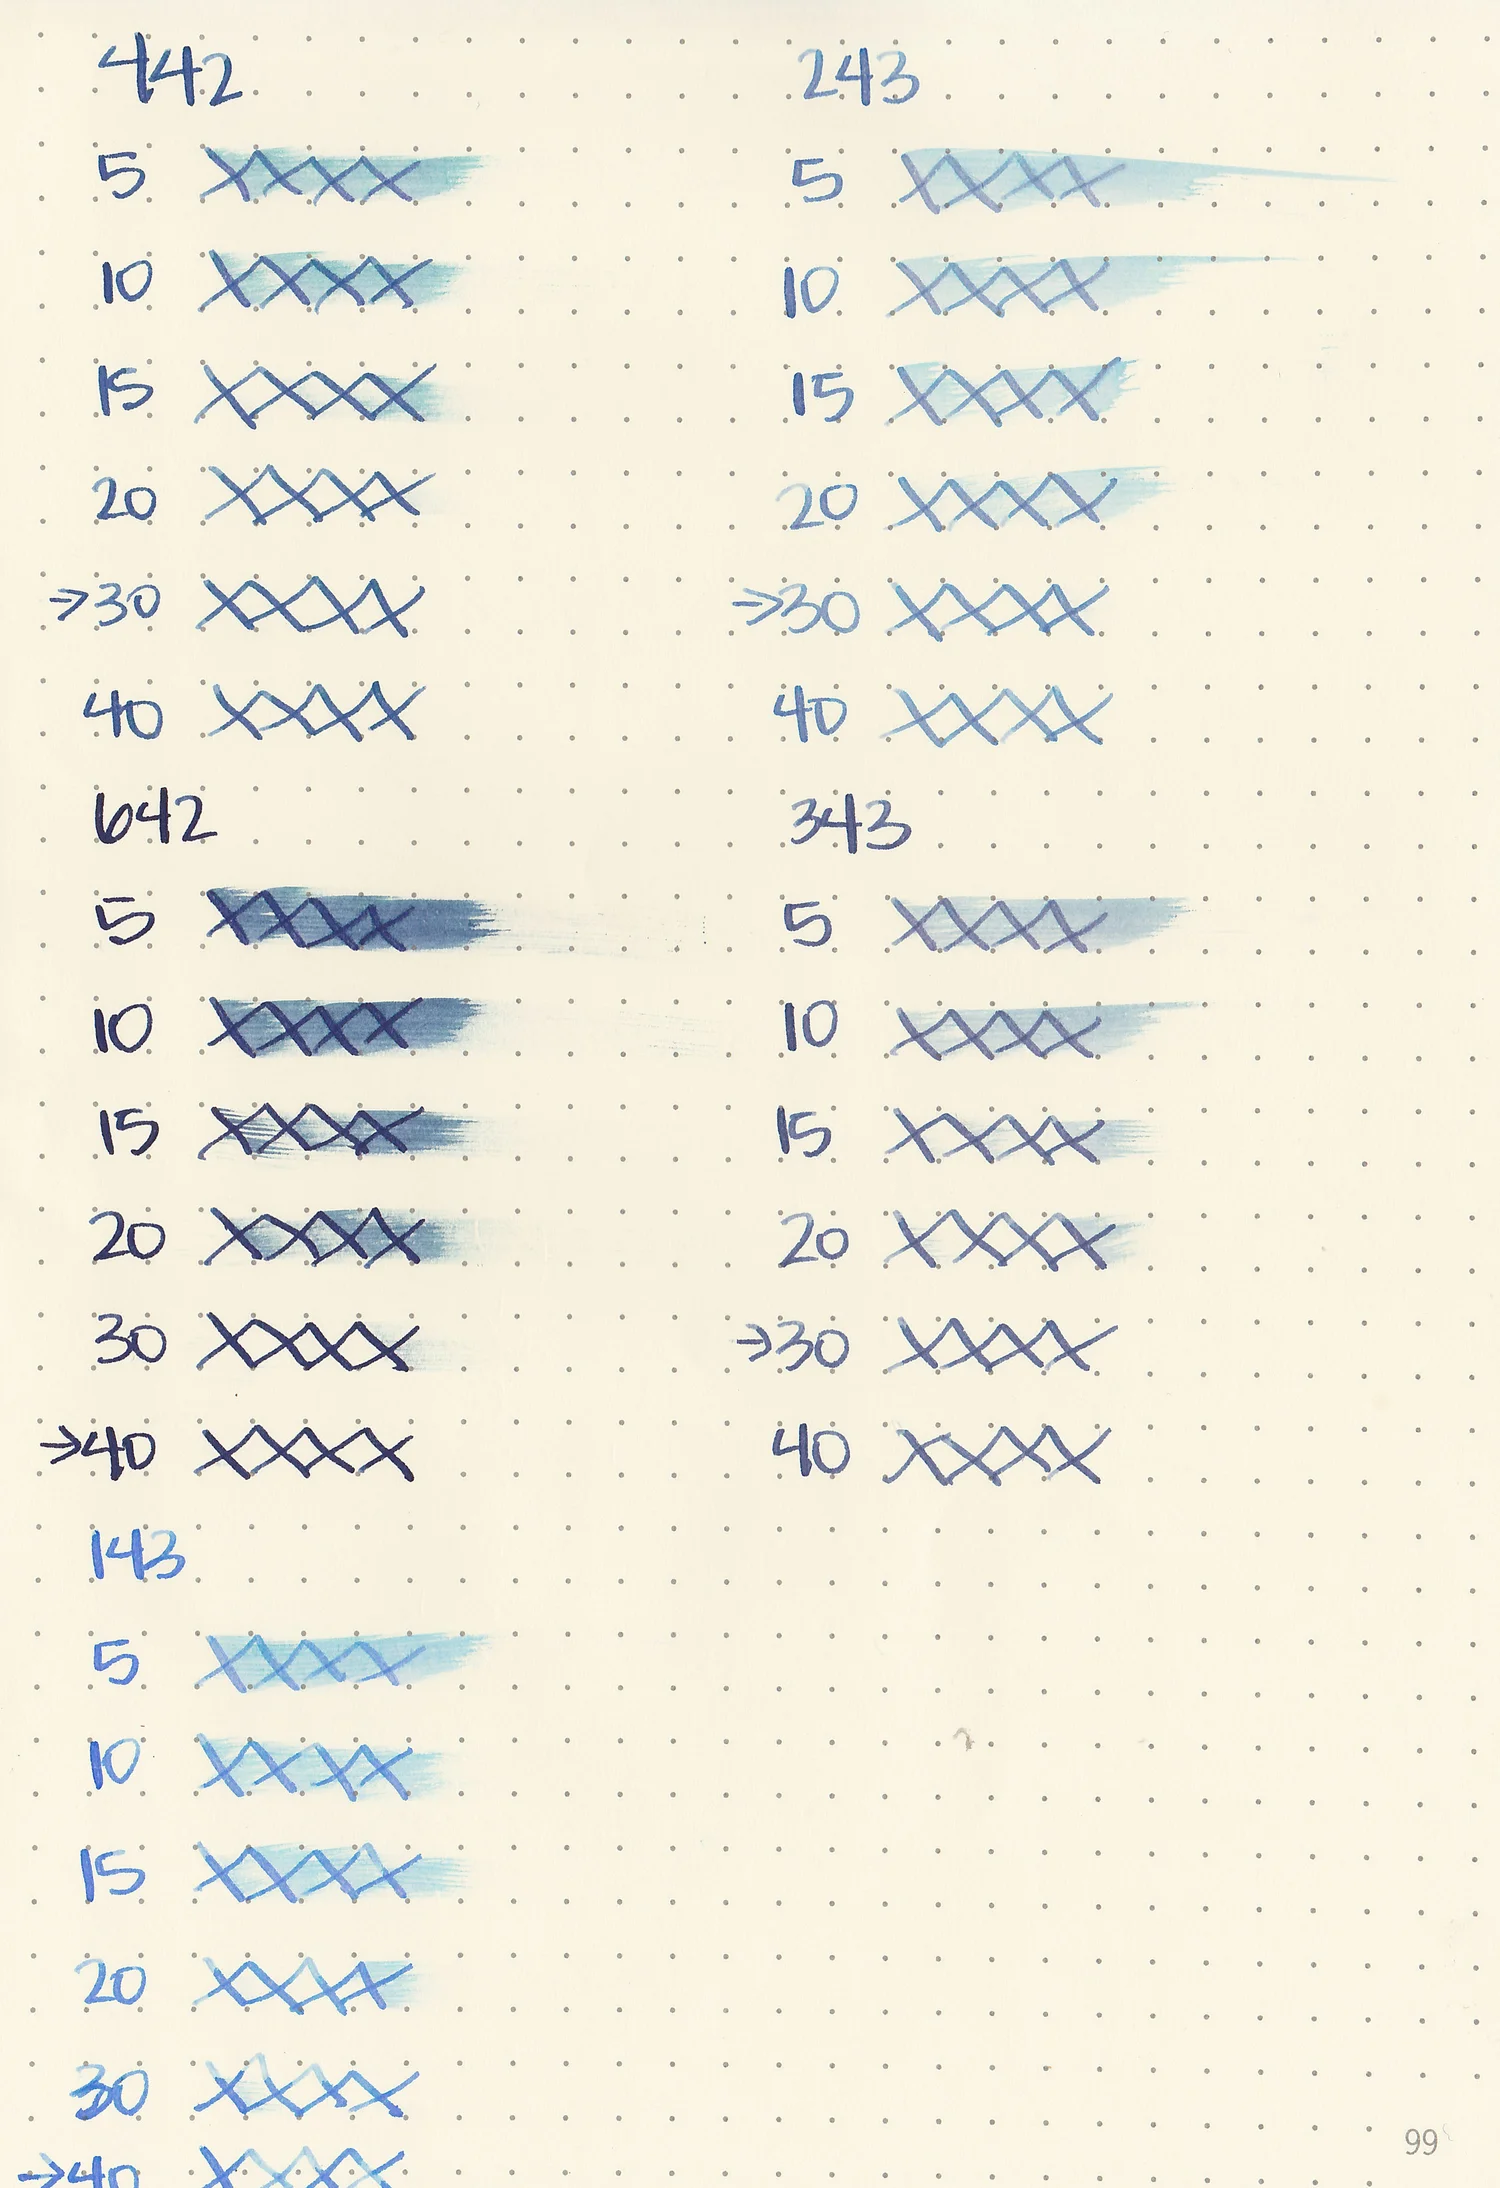 442
5 XXXX
10 XXXX
15 XXXX
20 XXXX
→30 XXXX
40 XXXX
642
5 XXXX
10 XXXX
15 XXXX
20 XXXX
30 XXXX
→40 XXXX
143
5 XXXX
10 XXXX
15 XXXX
20 XXXX
30 XXXX
→40 XXXX
243
5 XXXX
10 XXXX
15 XXXX
20 XXXX
→30 XXXX
40 XXXX
343
5 XXXX
10 XXXX
15 XXXX
20 XXXX
→30 XXXX
40 XXXX
99